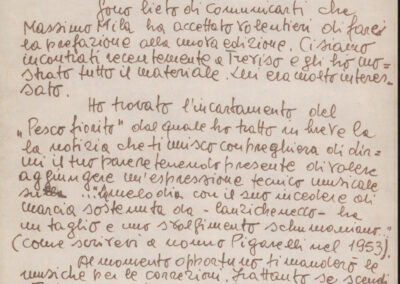 Sono lieto di comunicarti che
Massimo Mila ha accettato volentieri di farci
la prefazione alla nuova edizione. Ci siamo
incontrati recentemente a Treviso e gli ho mo-
strato tutto il materiale. Lui era molto interes-
sato.
Ho trovato l'incartamento del
"Pesco fiorito" dal quale ho tratto in breve la
la notizia che ti unisco con preghiera di dir-
mi il tuo parere tenendo presente di volere
aggiungere un'espressione tecnico musicale
"... melodia con il suo incedere di
marcia sostenuta da - lanzichenecco - ha
un taglio e uno svolgimento schumaniano..."
(come scrivevi a nonno Pigarelli nel 1953).
Al momento opportuno ti manderò le
musiche per le correzioni. Frattanto se scendi